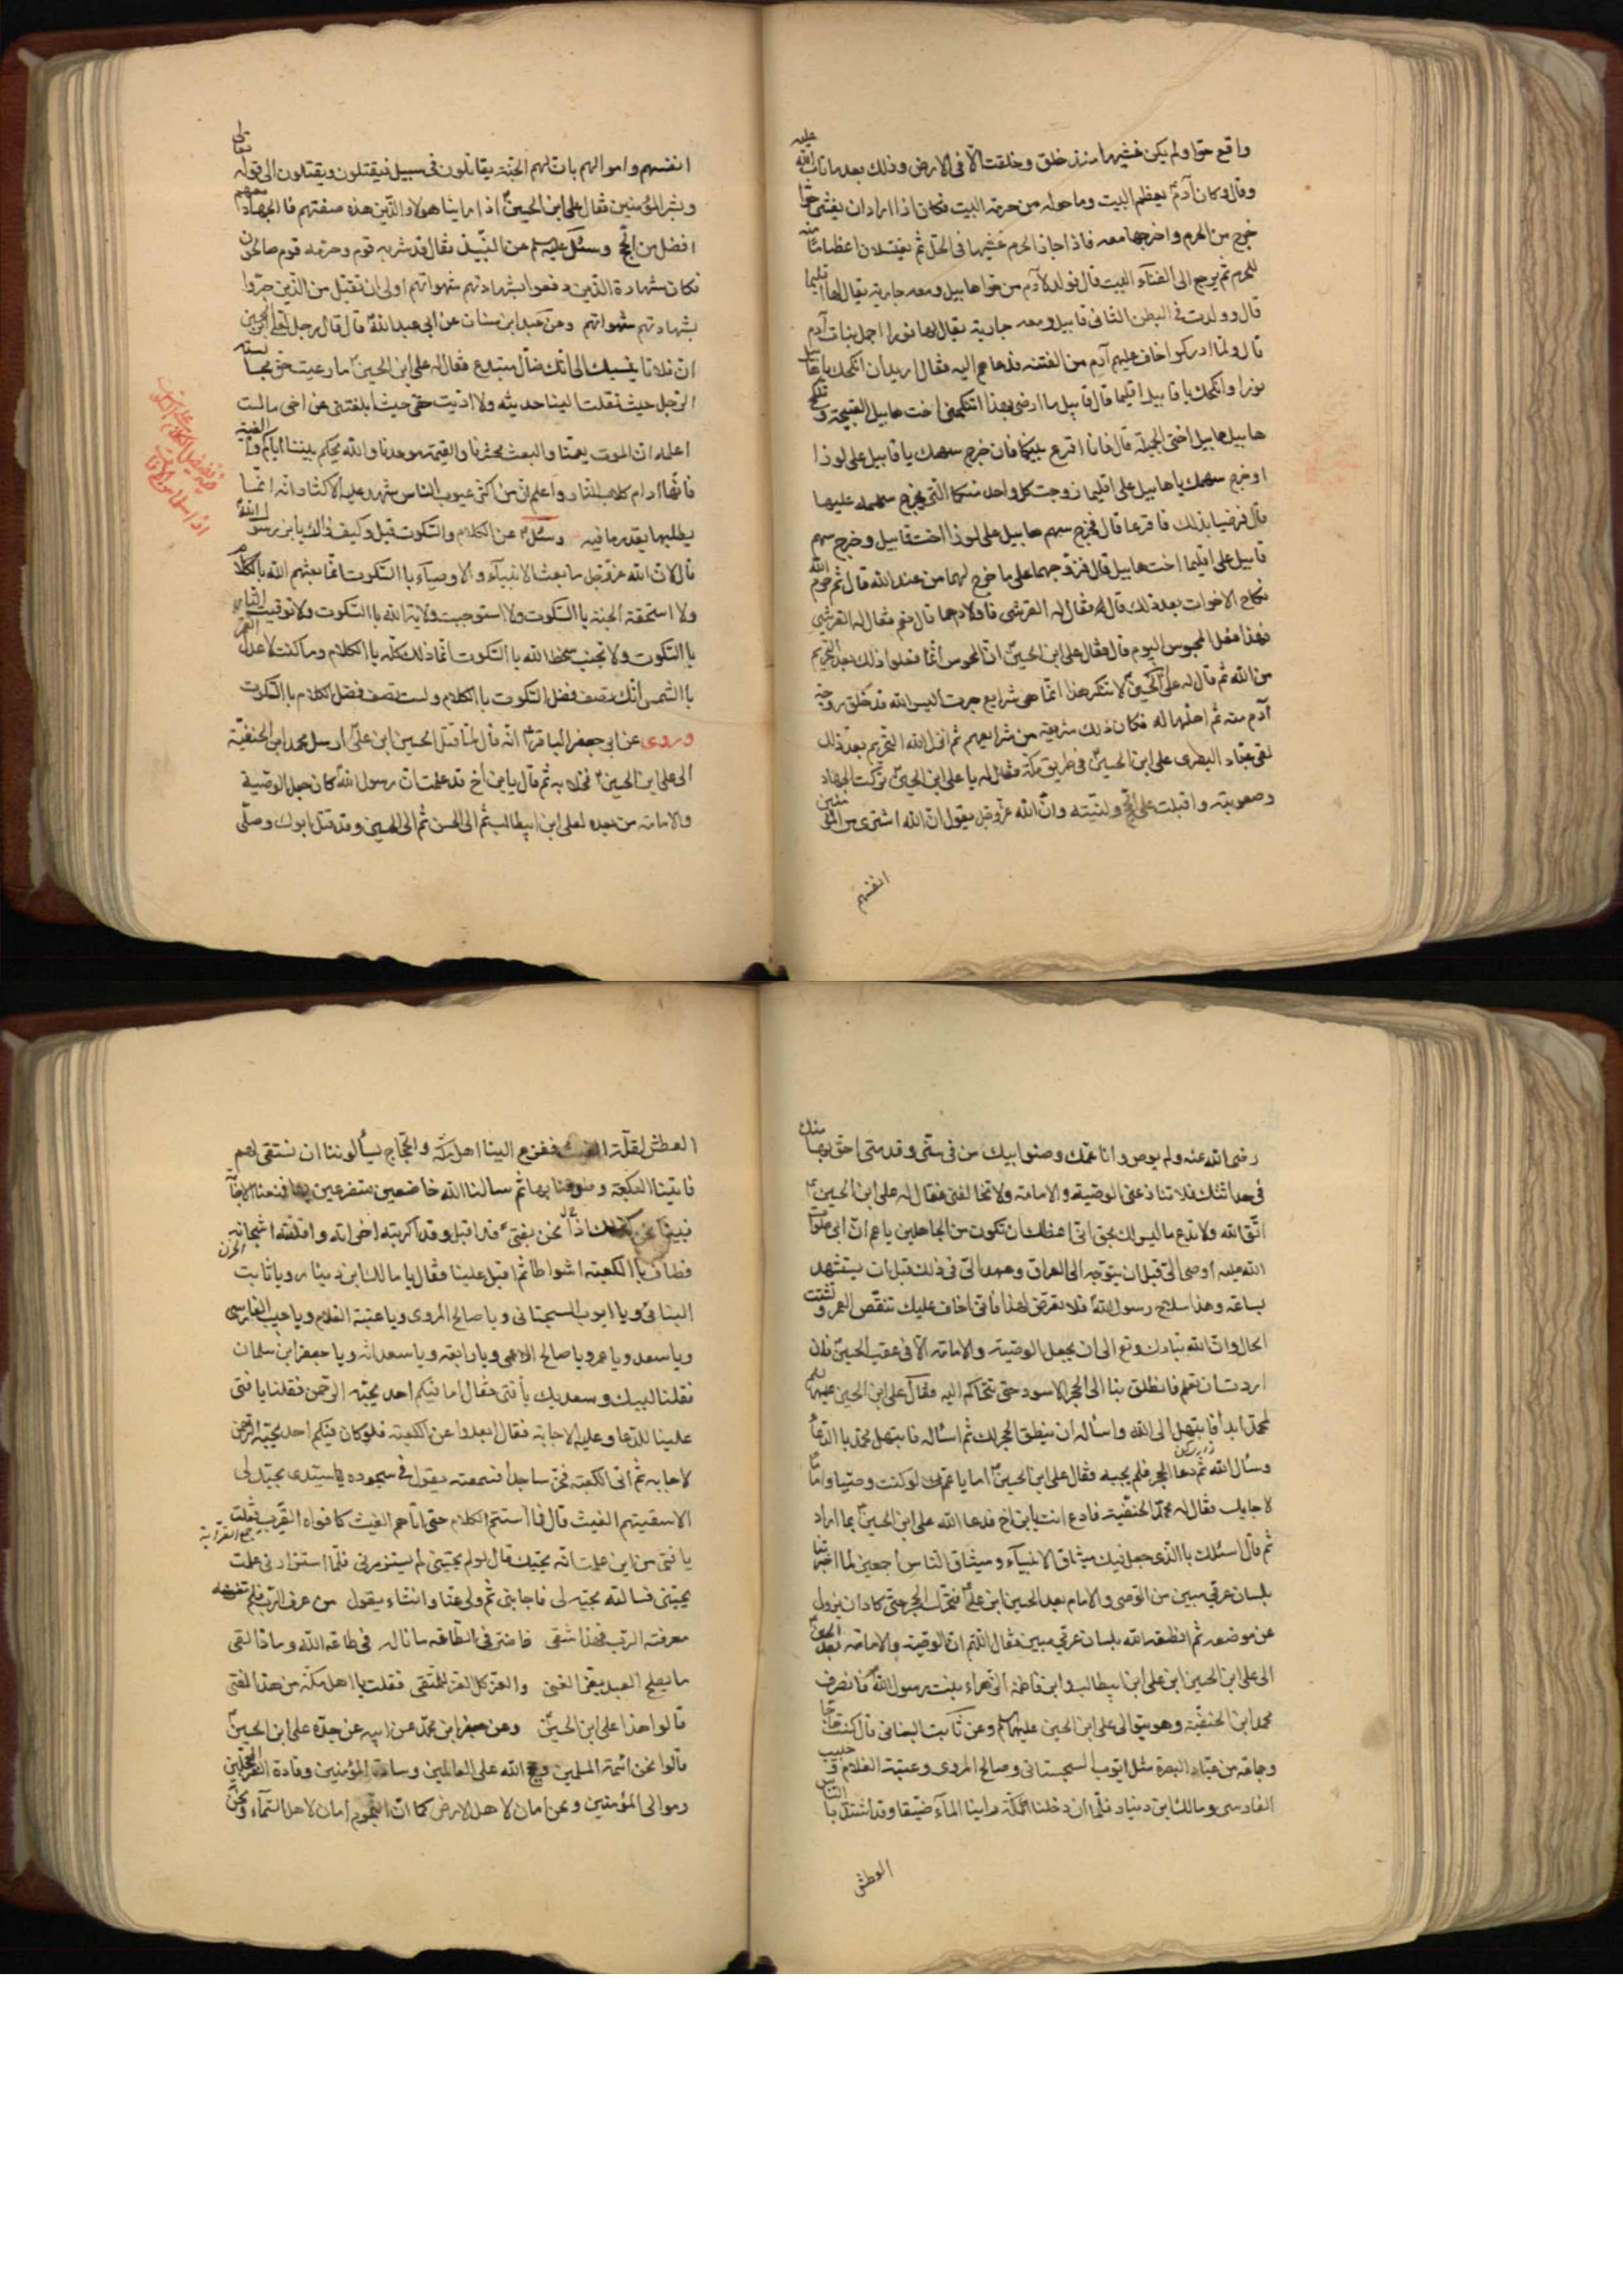 واقع حوا ولم يكن غشيها منذ خلق وخلقت الا فى الارض وذلك بعد ما تاب الله عليه
وقال وكان آدم يعظم البيت وما حوله من حرمة البيت فكان اذا اراد ان يغشى حوا
خرج من الحرم واخرجها معه فاذا جاز الحرم غشيها فى الحل ثم يغتسلان اعظاما منه
للحرم ثم يرجع الى الفناء البيت قال فولد لآدم من حوا هابيل ومعه جارية يقال لها اقليما
قال وولدت فى البطن الثانى قابيل ومعه جارية يقال لها لوزا اجمل بنات آدم
قال ولما ادركوا خاف عليهم آدم من الفتنة فدعاهم اليه فقال اريد ان انكحك يا هابيل
لوزا وانكحك يا قابيل اقليما قال قابيل ما ارضى بهذا اتنكحنى اخت هابيل القبيحة وتنكح
هابيل هابيل اختى الجميلة قال فانا اقرع بينكما فان خرج سهمك يا قابيل على لوزا
او خرج سهمك يا هابيل على اقليما زوجت كل واحد منكما التى يخرج سهمه عليها
قال فرضيا بذلك فاقرعا قال فخرج سهم هابيل على لوزا اخت قابيل وخرج سهم
قابيل على اقليما اخت هابيل قال فزوجهما على ما خرج لهما من عند الله قال ثم حرم الله
نكاح الاخوات بعد ذلك قال له فقال له القرشى فاولاد هما قال نعم فقال له القرشى
فهذا فعل المجوس اليوم قال فقال على ابن الحسين ان المجوس انما فعلوا ذلك بعد التحريم
من الله ثم قال له على ابن الحسين لا تنكر هذا انما هى شرايع جرت اليس الله قد خلق زوجة
آدم منه ثم احلها له فكان ذلك شريعة من شرايعهم ثم انزل الله التحريم بعد ذلك
لقى عباد البصرى على ابن الحسين فى طريق مكة فقال له يا على ابن الحسين تركت الجهاد
وصعوبته واقبلت على الحج ولينته وان الله عز وجل يقول ان الله اشترى من المؤمنين
انفسهم
انفسهم واموالهم بان لهم الجنة يقاتلون فى سبيل فيقتلون ويقتلون الى قوله تعالى
وبشر المؤمنين فقال على ابن الحسين اذا راينا هولاء الذين هذه صفتهم فا الجهاد معهم
افضل من الحج وسئل عليه السلم عن النبيذ فقال قد شربه قوم وحرمه قوم صالحون
فكان شهادة الذين دفعوا بشهادتهم شهواتهم اولى ان تقبل من الذين جروا
بشهادتهم شهواتهم وعن عبد ابن سنان عن ابى عبد الله قال قال رجل لعلى ابن الحسين
ان فلانا ينسبك الى انك ضال مبتدع فقال له على ابن الحسين ما رعيت حق مجالسة
الرجل حيث نقلت الينا حديثه ولا اديت حقى حيث ابلغتنى عن اخى ما لست
اعلمه ان الموت يعمنا والبعث محشرنا والقيمة موعدنا والله يحكم بيننا اياكم والغيبة
فانها ادام كلاب النار واعلم ان من اكثر عيوب الناس شهد عليه الاكثار انه انما
يطلبها بقدر ما فيه وسئل عن الكلام والسكوت قيل وكيف ذالك يا بن رسول الله
قال لان الله عز وجل ما بعث الانبياء والاوصياء باالسكوت انما بعثهم الله باالكلام
ولا استحقة الجنة باالسكوت ولا استوجبت ولاية الله باالسكوت ولا توقيت النار
باالسكوت ولا تجنب سخط الله باالسكوت انما ذلك كله باالكلام وما كنت لاعدل القمر
باالشمس انك تصف فضل السكوت باالكلام ولست تصف فضل الكلام باالسكوت
وروى عن ابى جعفر الباقر انه قال لما قتل الحسين ابن على ارسل محمد ابن الحنفية
الى على ابن الحسين فخلا به ثم قال يا بن أخ قد علمت ان رسول الله كان جعل الوصية
والامامة من بعده لعلى ابن ابيطالب ثم الى الحسن ثم الى الحسين وقد قتل ابوك وصلى
رضى الله عنه ولم يوص وانا عمك وصنوا بيك من فى سنى وقدمتى احق بها منك
فى حداثتك فلا تنازعنى الوصية والامامة ولا تخالفنى فقال له على ابن الحسين
اتق الله ولا تدع ما ليس لك بحق انى اعظك ان تكون من الجاهلين يا عم ان ابى صلوات
الله عليه اوصى الى قبل ان يتوجه الى العراق وعهد الى فى ذلك قبل ان يستشهد
بساعة وهذا سلاح رسول الله فلا تعرض لهذا فانى اخاف عليك تنقص العمر وتشتت
الحال وان الله تبارك وتع الى ان يجعل الوصية والامامة الا فى عقب الحسين فان
اردت ان تعلم فانطلق بنا الى الحجر الاسود حتى نتحاكم اليه فقال على ابن الحسين عليه السلم
لمحمد ابدأ فابتهل الى الله واسأله ان ينطق الحجر لك ثم اسأله فابتهل محمد باالدعا
وسأل الله ثم دعا الحجر فلم يجبه فقال على ابن الحسين اما يا عم لو كنت وصيا واماما
لاجابك فقال له محمد الحنفية فادع انت يا بن اخ فدعا الله على ابن الحسين بما اراد
ثم قال اسئلك باالذى جعل فيك ميثاق الانبياء وميثاق الناس اجمعين لما اخبرتنا
بلسان عربى مبين من الوصى والامام بعد الحسين ابن على فتحرك الحجر حتى كاد ان يزول
عن موضعه ثم انطقه الله بلسان عربى مبين فقال اللهم ان الوصية والامامة بعد الحسين
الى على ابن الحسين ابن على ابن ابيطالب وابن فاطمة الزهراء بنت رسول الله فانصرف
محمد ابن الحنفية وهو يتوالى على ابن الحسين عليهما السلم وعن ثابت البنانى قال كنت حاجا
وجماعة من عباد البصرة مثل ايوب السجستانى وصالح المروى وعتبة الغلام وحبيب
الفارسى ومالك ابن دينار فلما ان دخلنا المكة راينا المآء ضيقا وقد اشتد باالناس
العطش
العطش لقلة الغيث ففزع الينا اهل مكة والحجاج يسألوننا ان نستقى لهم
فاتينا الكعبة وطوفنا بها ثم سالنا الله خاضعين متضرعين بها فمنعنا الاجابة
فبينا نحن كذلك اذا نحن بفتى قد اقبل وقد اكربته احزانه واقلقته اشجانه
فطاف باالكعبة اشواطا ثم اقبل علينا فقال يا مالك ابن دينار ويا ثابت
البنانى ويا ايوب السجستانى ويا صالح المروى ويا عتبة الغلام ويا حبيب الفارسى
ويا سعد ويا عمر ويا صالح الاعمى ويا رابعة ويا سعدانه ويا جعفر ابن سلمان
فقلنا لبيك وسعديك يا فتى فقال اما فيكم احد يحبه الرحمن فقلنا يا فتى
علينا الدعا وعليه الاجابة فقال ابعدوا عن الكعبة فلو كان فيكم احد يحبه الرحمن
لاجابه ثم اتى الكعبة فخر ساجدا فسمعته يقول فى سجوده يا سيدى بحبك لى
الا سقيتهم الغيث قال فما استتم الكلام حتى اتاهم الغيث كافواه القرب فقلت
يا فتى من اين علمت انه يحبك قال لو لم يحبنى لم يستزرنى فلما استزارنى علمت
يحبنى فسالته بحبه لى فاجابنى ثم ولى عنا وانشاء يقول من عرف الرب فلم تغنه
معرفة الرب فهذا شقى ما ضر فى الطاعة ما ناله فى طاعة الله وما ذا لقى
ما يصلح العبد بغير الغنى والعز كل العز للمتقى فقلت يا اهل مكة من هذا الفتى
قالوا هذا على ابن الحسين وعن جعفر ابن محمد عن ابيه عن جده على ابن الحسين
قالوا نحن ائمة المسلمين وحجج الله على العالمين وسادة المؤمنين وقادة الغر المحجلين
وموالى المؤمنين ونحن امان لاهل الارض كما ان النجوم امان لاهل السماء ونحن